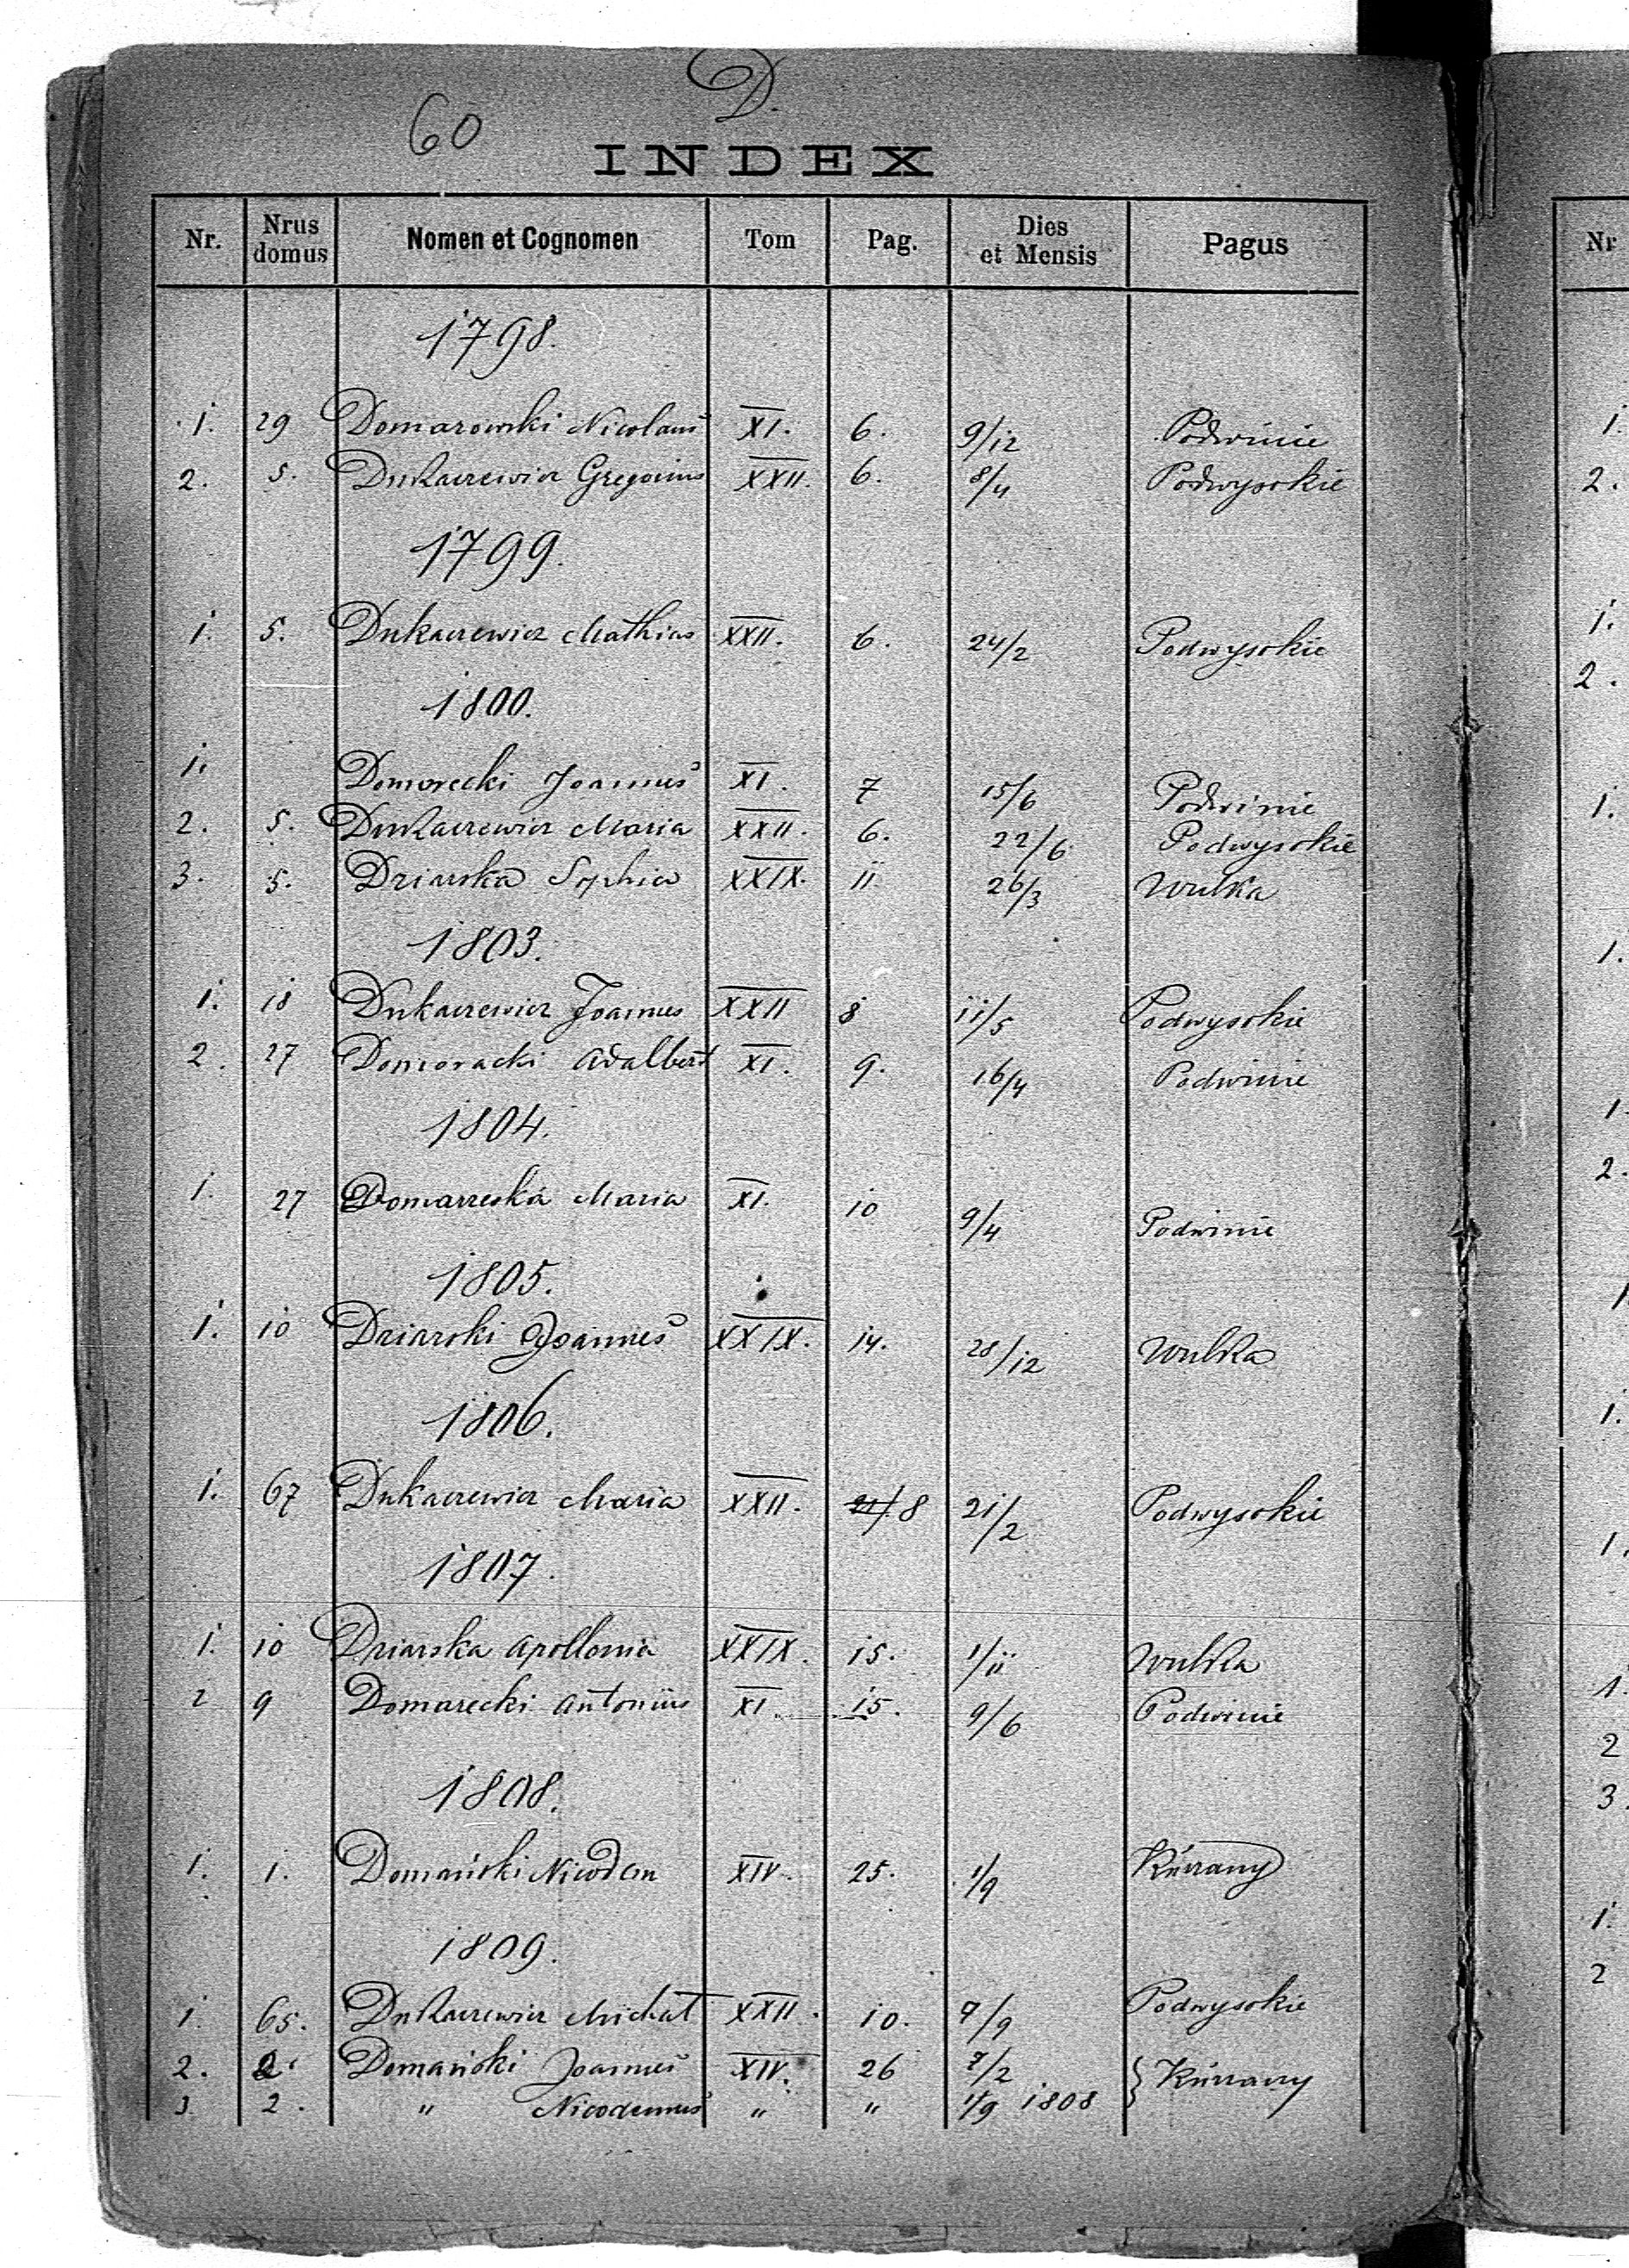 D.
60
INDEX
Nr. Nrus domus Nomen et Cognomen Tom Pag. Dies et Mensis Pagus Nr
1798.
1. 29 Domarowski Nicolaus XI. 6. 9/12 Podwinie 1.
2. 5. Dukaczewicz Gregorius XXII. 6. 8/4 Podwysokie 2.
1799.
1. 5. Dukaczewicz Mathias XXII. 6. 24/2 Podwysokie 1.
2.
1800.
1. Domorecki Joannes XI. 7 15/6 Podwinie 1.
2. 5. Dukaczewicz Maria XXII. 6. 22/6 Podwysokie
3. 5. Dziarska Sophia XXIX. 11 26/3 Wulka
1803. 1.
1. 18 Dukaczewicz Joannes XXII 8 11/5 Podwysokie
2. 27 Domoracki Adalbert XI. 9. 16/4 Podwinie
1804. 1
1. 27 Domarzeska Maria XI. 10 9/4 Podwinie 2.
1805. 1
1. 10 Dziarski Joannes XXIX. 14. 28/12 Wulka
1806. 1.
1. 67 Dukaczewicz Maria XXII. 8 21/2 Podwysokie
1807. 1.
1. 10 Dziarska Apollonia XXIX. 15. 1/11 Wulka 1.
2 9 Domarecki Antonius XI. 15. 9/6 Podwinie 2
1808. 3.
1. 1. Domański Nicodem XIV. 25. 1/9 Kurzany
1809. 1.
1. 65. Dukaczewicz Michał XXII. 10. 7/9 Podwysokie 2
2. 2. Domański Joannes XIV. 26 7/2 } Kurzany
3 2. " Nicodemus " " 1/9 1808